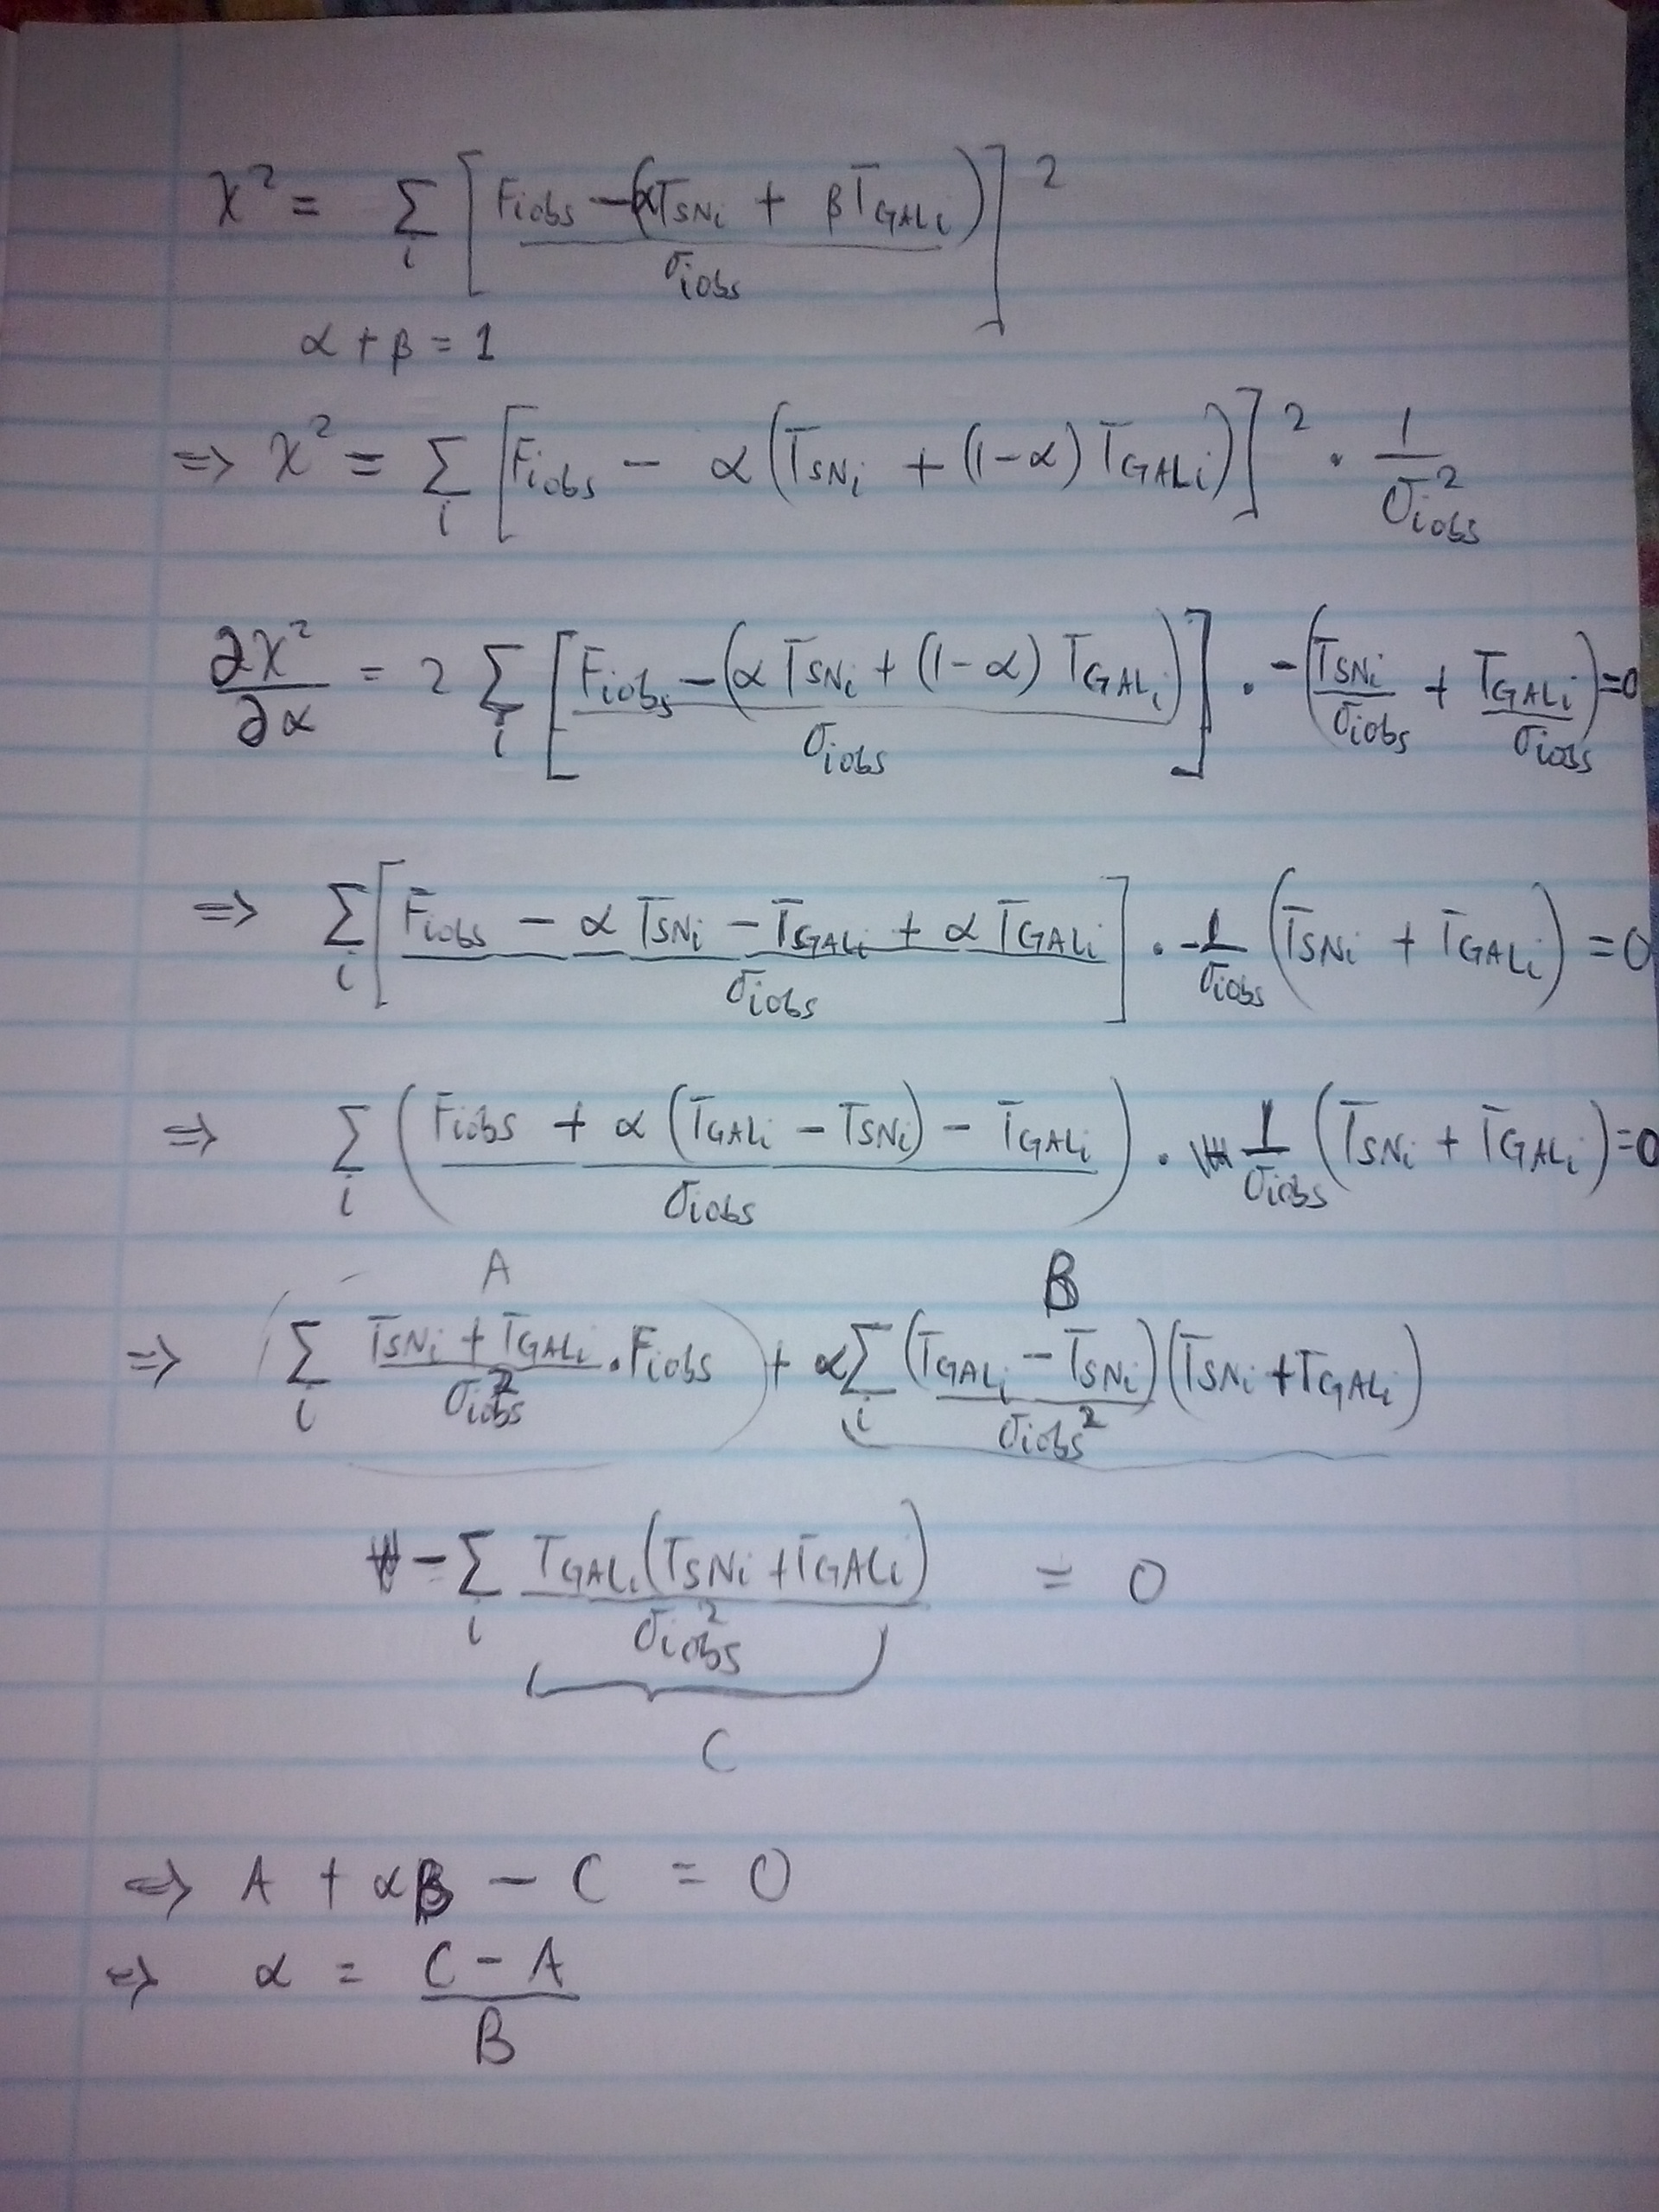 χ² = Σ_i [ (F_iobs − (αT_SNi + βT_GALi)) / σ_iobs ]²
α + β = 1
⇒ χ² = Σ_i [ F_iobs − α (T_SNi + (1−α) T_GALi) ]² · 1/σ_iobs²
∂χ²/∂α = 2 Σ_i [ (F_iobs − (α T_SNi + (1−α) T_GALi)) / σ_iobs ] · −(T_SNi/σ_iobs + T_GALi/σ_iobs) = 0
⇒ Σ_i [ (F_iobs − α T_SNi − T_GALi + α T_GALi) / σ_iobs ] · −1/σ_iobs (T_SNi + T_GALi) = 0
⇒ Σ_i ( (F_iobs + α (T_GALi − T_SNi) − T_GALi) / σ_iobs ) · 1/σ_iobs (T_SNi + T_GALi) = 0
A B
⇒ ( Σ_i (T_SNi + T_GALi)/σ_iobs² · F_iobs ) + α Σ_i (T_GALi − T_SNi)/σ_iobs² (T_SNi + T_GALi)
− Σ_i T_GALi (T_SNi + T_GALi) / σ_iobs² = 0
C
⇒ A + αB − C = 0
⇒ α = (C − A) / B